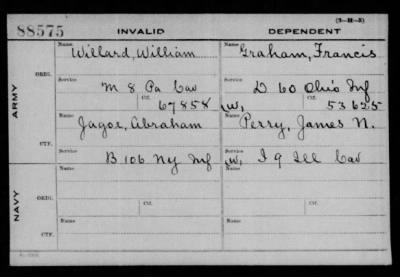 (3-H-3)
88575 INVALID DEPENDENT
Name Name
Willard, William Graham, Francis
ORIG.
Service Service
M 8 Pa Cav D 60 Ohio Inf
Ctf. Ctf.
67858 W, 53625
ARMY
Name Name
Jagoe, Abraham Perry, James N.
CTF.
Service
B 106 Ny Inf W, I 9 Ill Cav
NAVY
Name Name
ORIG.
Service Ctf. Service Ctf.
Name Name
CTF.
Service Service